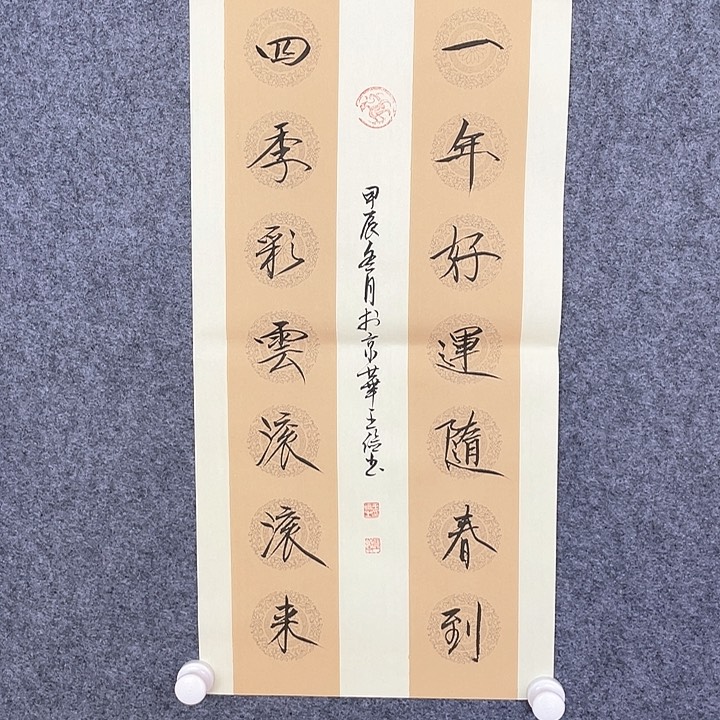 一年好運隨春到
四季彩雲滚滚来
甲辰冬月於京華王信书